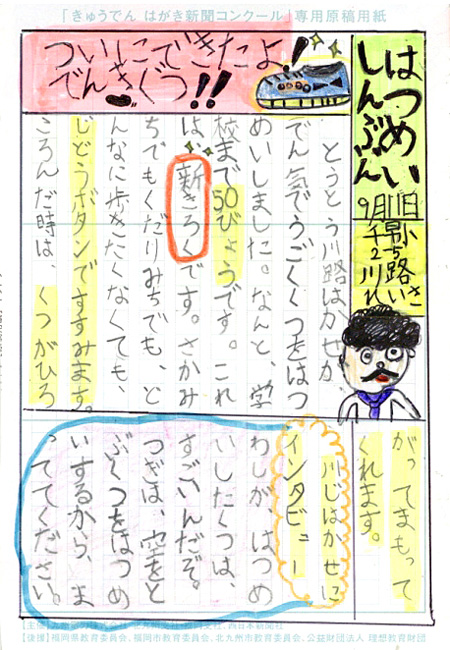 「きゅうでん はがき新聞コンクール」専用原稿用紙
はつめい
しんぶん
9月11日
ついにできたよ!
でんきぐつ!!
とうとう川路はかせが
でん気でうごくくつをはつ
めいしました。なんと、学
校まで50びょうです。これ
は、新きろくです。さかみ
ちでもくだりみちでも、ど
んなに歩きたくなくても、
じどうボタンですすみます。
ころんだ時は、くつがひろ
がってまもって
くれます。
川じはかせに
インタビュー
わしが、はつめ
いしたくつは、
すごいんだぞ。
つぎは、空をと
ぶくつをはつめ
いするから、ま
っててください。
【後援】福岡県教育委員会、福岡市教育委員会、北九州市教育委員会、公益財団法人 理想教育財団